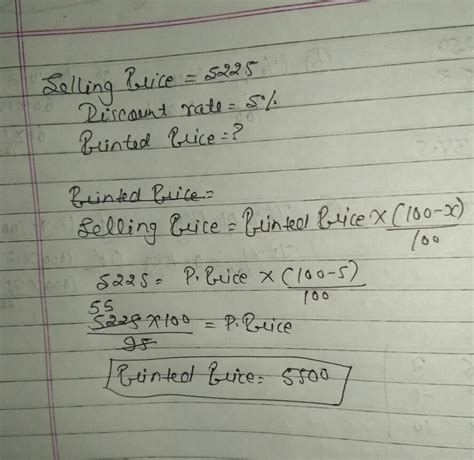 Selling Price = 5225
Discount rate = 5%
Printed Price = ?
Printed Price =
Selling Price = Printed Price × (100-x)
100
5225 = P. Price × (100-5)
100
55
5225 × 100 = P. Price
95
Printed Price = 5500